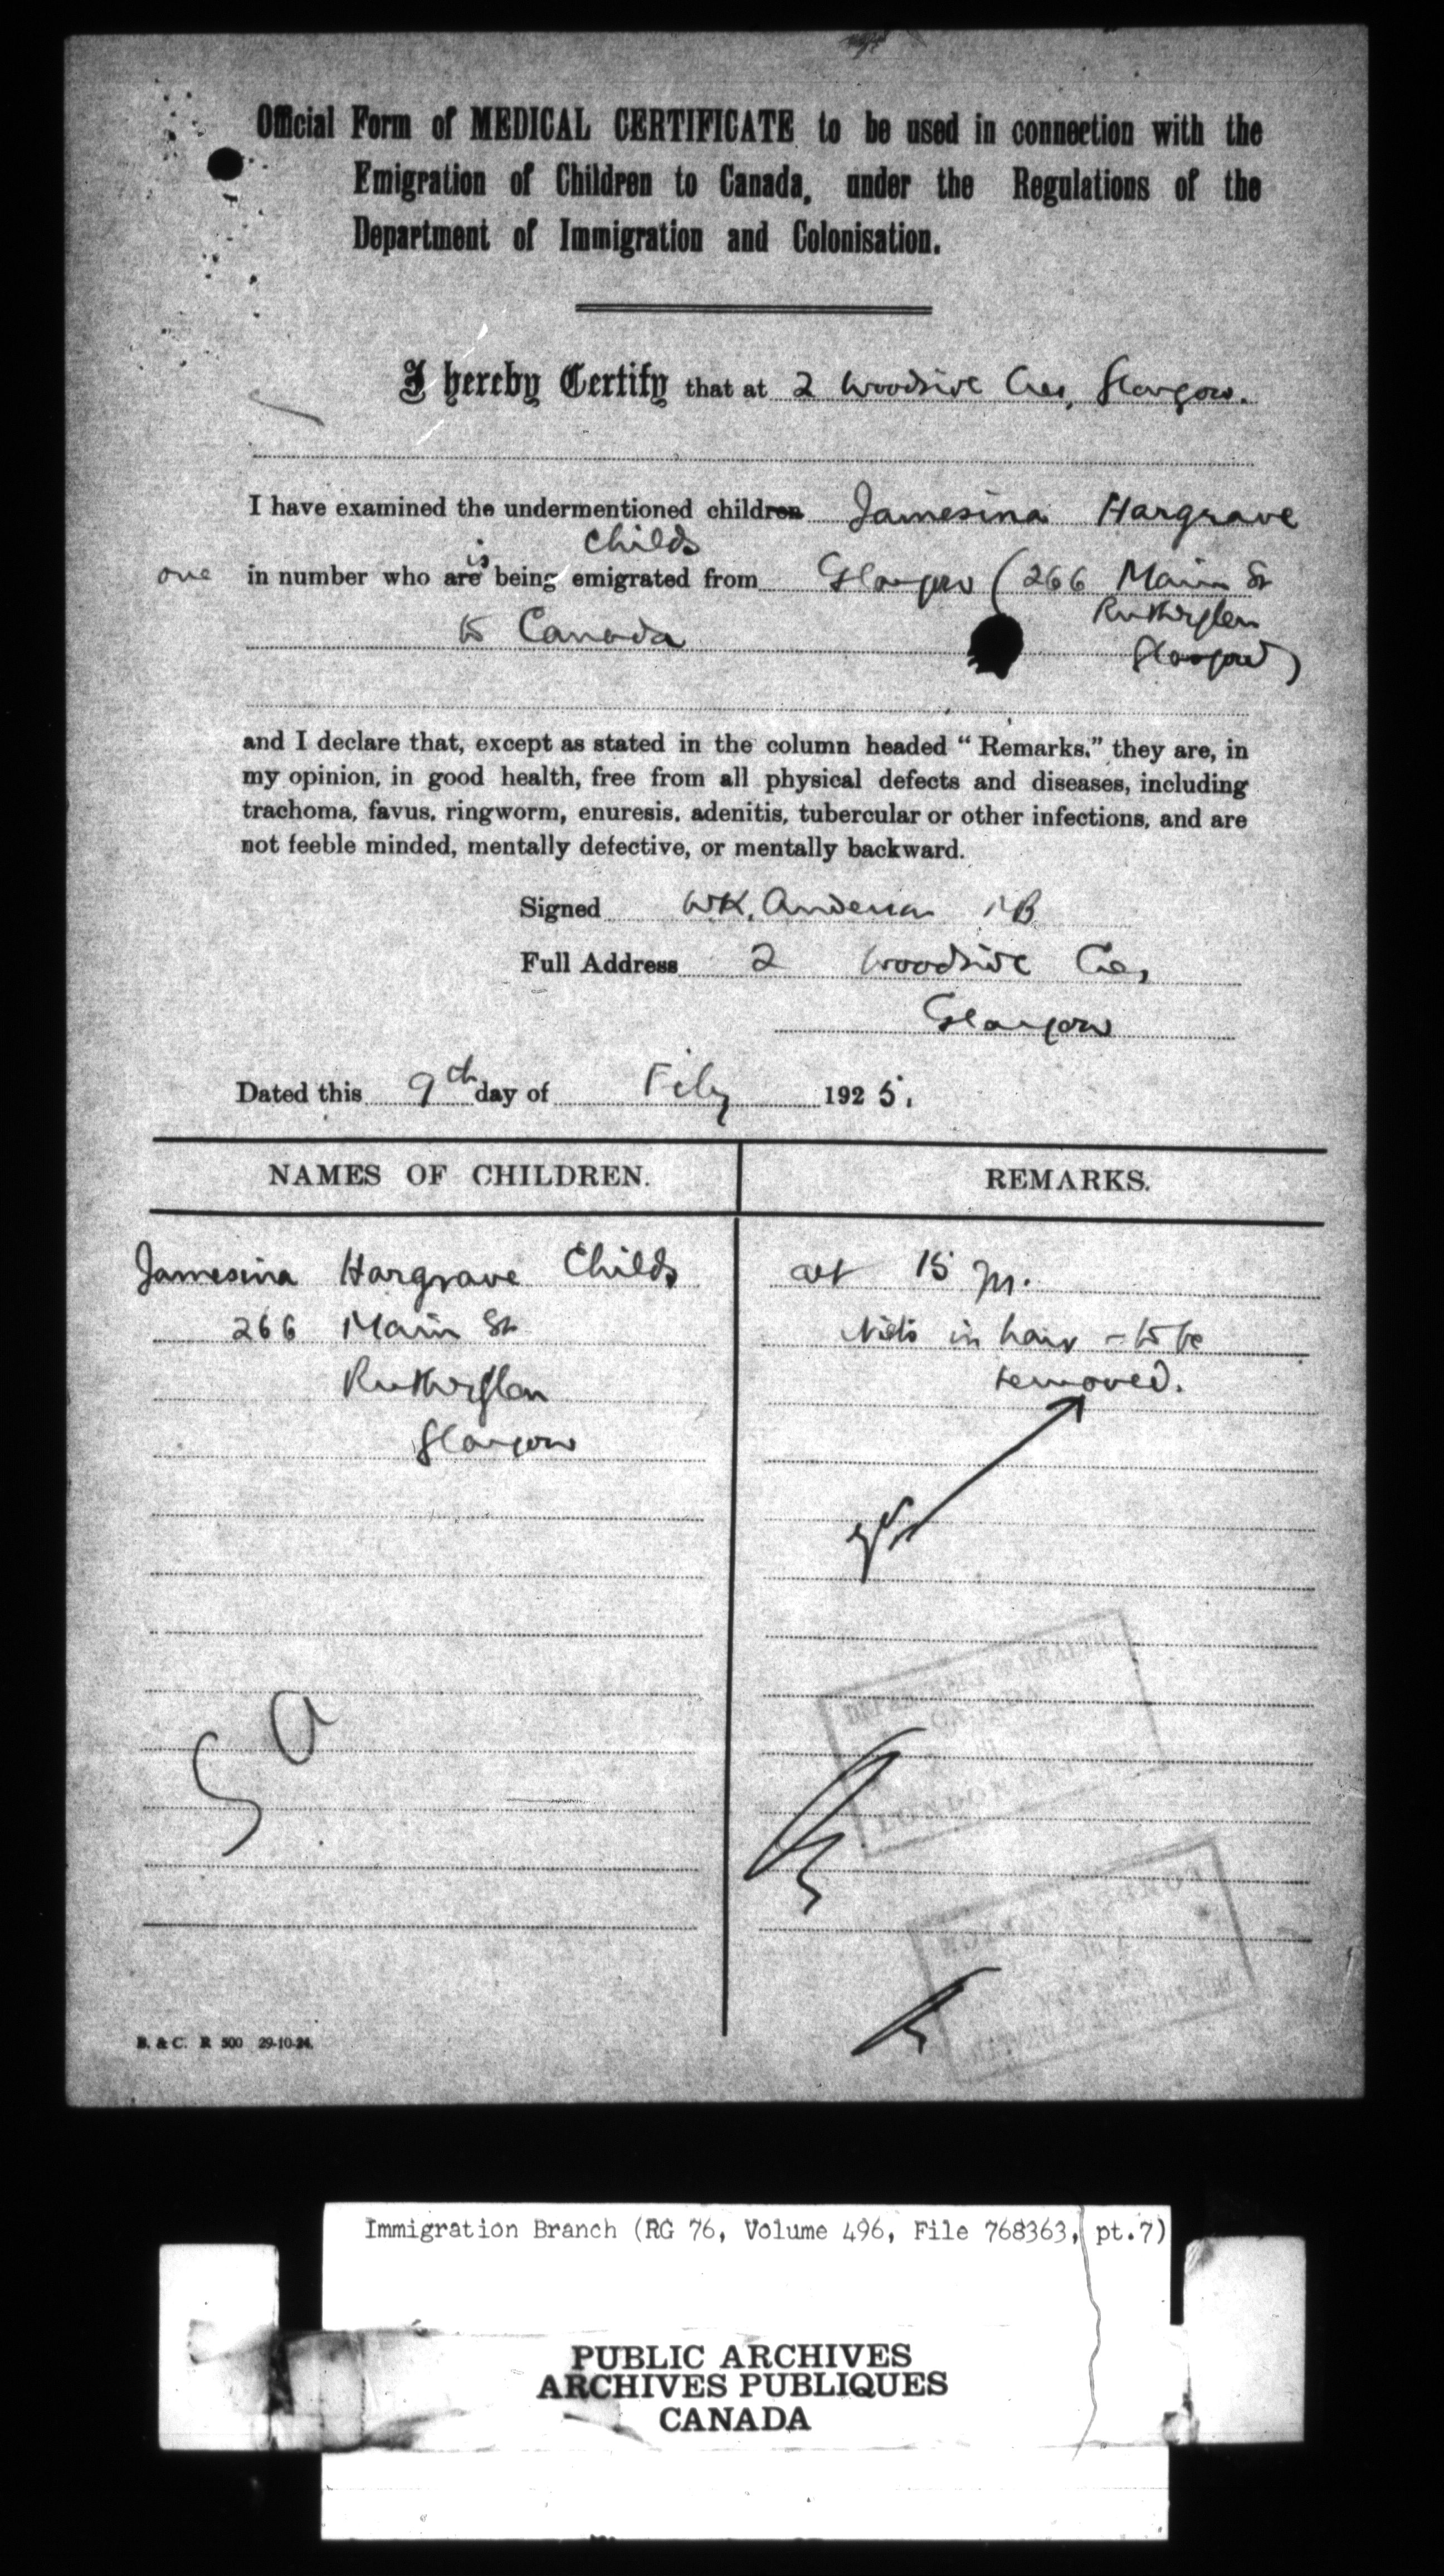 Official Form of MEDICAL CERTIFICATE to be used in connection with the
Emigration of Children to Canada, under the Regulations of the
Department of Immigration and Colonisation.
I hereby Certify that at 2 Woodside Cres, Glasgow.
I have examined the undermentioned children Jamesina Hargrave
Childs
one in number who are is being emigrated from Glasgow (266 Main St
Rutherglen
to Canada
Glasgow)
and I declare that, except as stated in the column headed “Remarks.” they are, in
my opinion, in good health, free from all physical defects and diseases, including
trachoma, favus, ringworm, enuresis, adenitis, tubercular or other infections, and are
not feeble minded, mentally defective, or mentally backward.
Signed WK. Anderson MB
Full Address 2 Woodside Cres,
Glasgow
Dated this 9th day of Feby 1925.
NAMES OF CHILDREN. REMARKS.
Jamesina Hargrave Childs aet 15
266 Main St Nits in hair - to be
Rutherglen removed.
Glasgow
B. & C. R 500 29-10-24.
Immigration Branch (RG 76, Volume 496, File 768363, pt.7)
PUBLIC ARCHIVES
ARCHIVES PUBLIQUES
CANADA